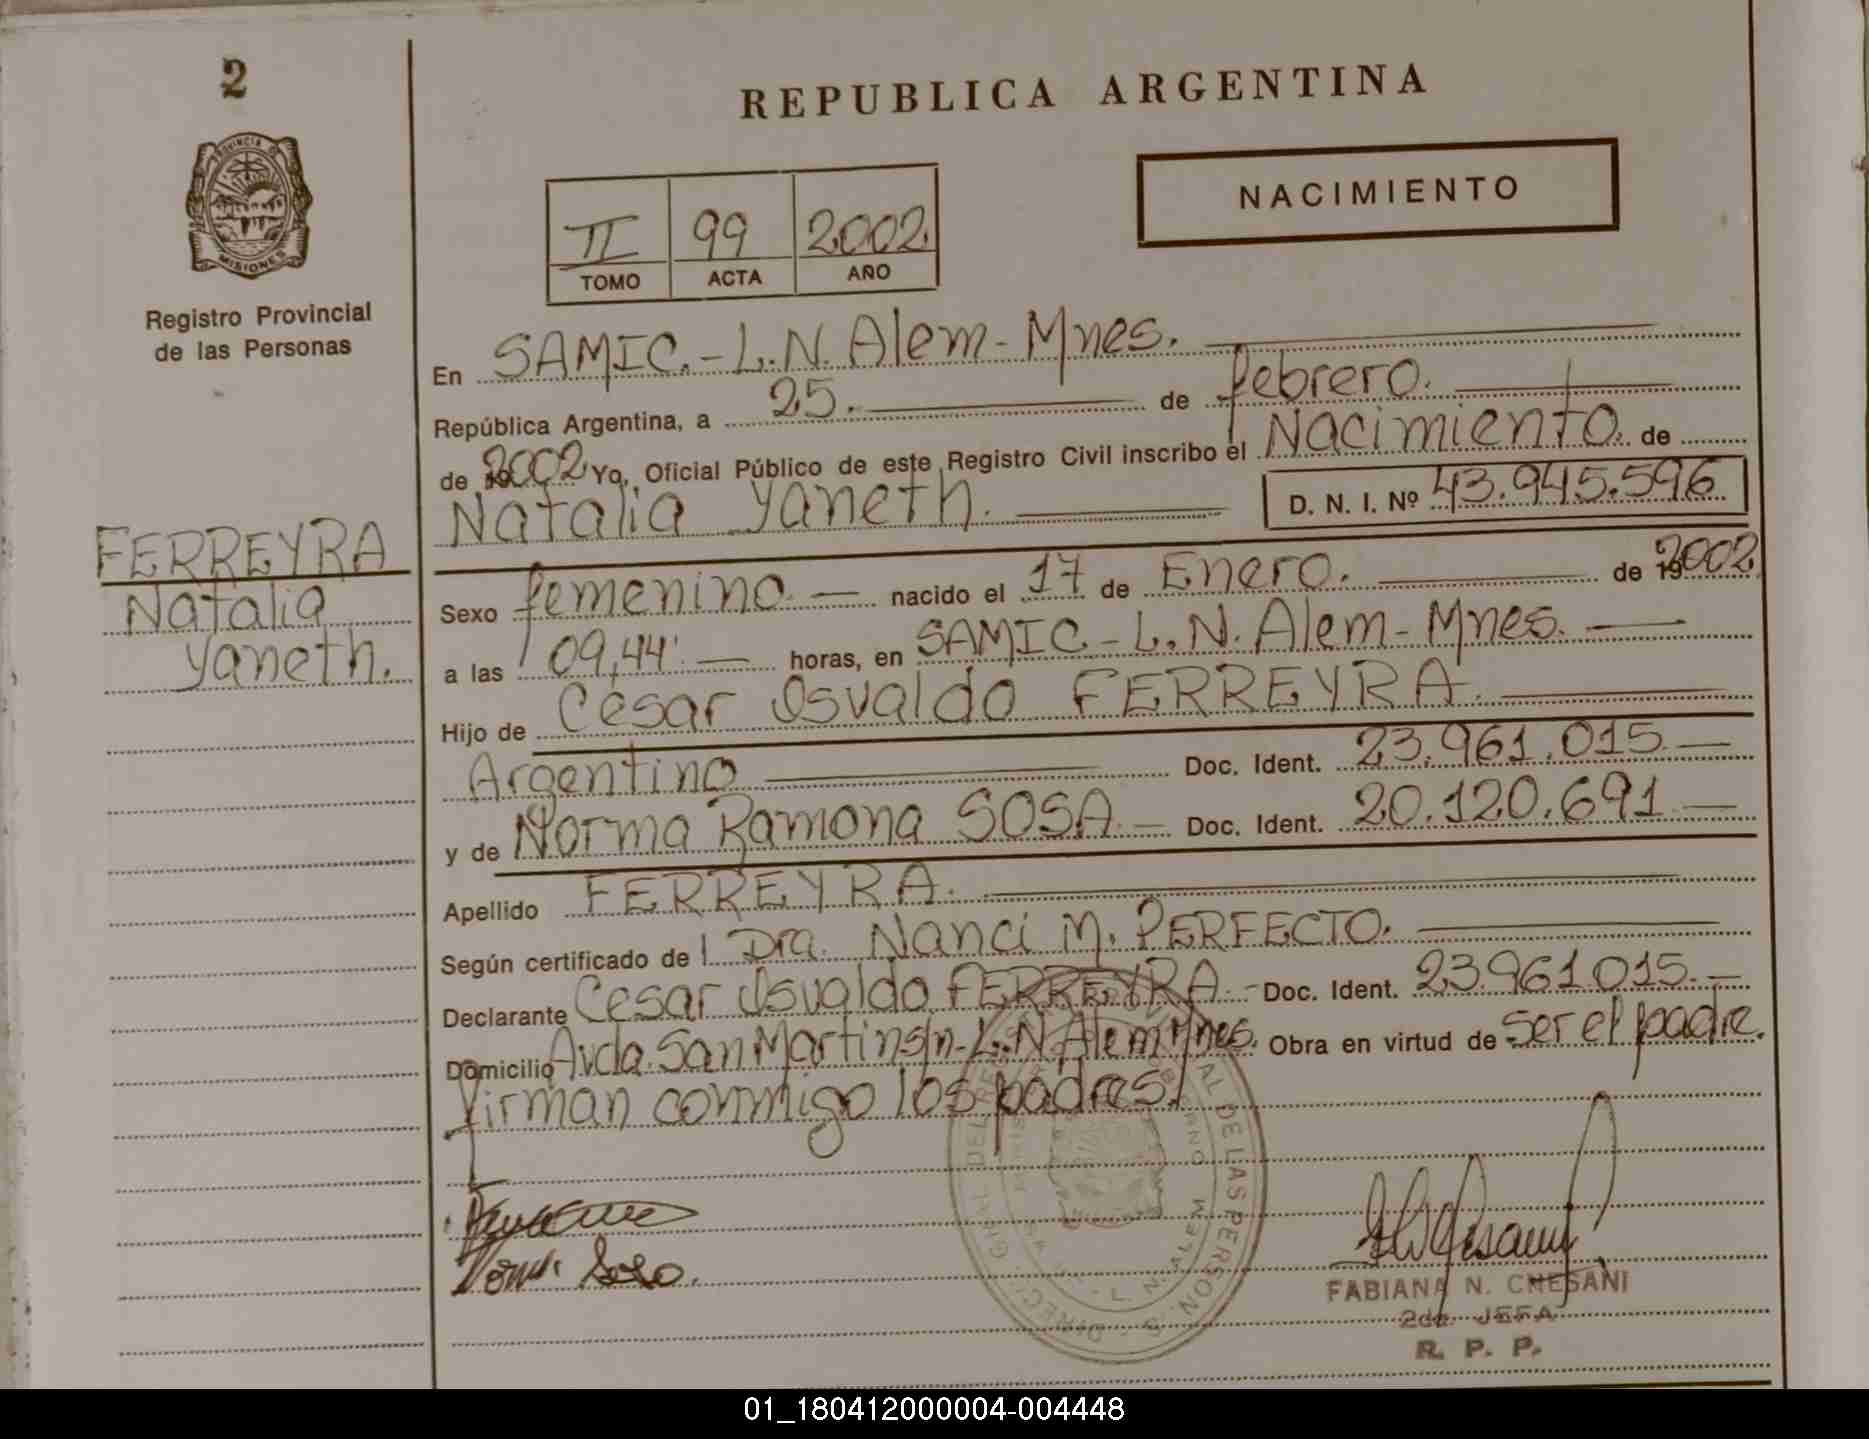 2
REPUBLICA ARGENTINA
PROVINCIA DE
MISIONES
Registro Provincial
de las Personas
NACIMIENTO
II 99 2002
TOMO ACTA AÑO
En SAMIC.-L.N. Alem-Mnes.
República Argentina, a 25. de febrero.
de 2002 Yo, Oficial Público de este Registro Civil inscribo el Nacimiento. de
Natalia Yaneth. D. N. I. Nº 43.945.596
FERREYRA
Natalia
Yaneth.
Sexo femenino nacido el 17 de Enero. de 19 2002
a las 09,44' horas, en SAMIC-L.N. Alem-Mnes.
Hijo de César Osvaldo FERREYRA.
Argentino Doc. Ident. 23.961.015
y de Norma Ramona SOSA. Doc. Ident. 20.120.691
Apellido FERREYRA.
Según certificado de l Dra. Nanci M. PERFECTO.
Declarante Cesar Osvaldo FERREYRA - Doc. Ident. 23.961.015.-
Domicilio Avda. San Martin s/n - L.N Alem Mnes. Obra en virtud de ser el padre.
firman conmigo los padres.
Sosa.
FABIANA N. CHESANI
2da. JEFA
R. P. P.
DIREC. GRAL DEL REG. PROVINCIAL DE LAS PERSONAS
L. N. ALEM
01_180412000004-004448